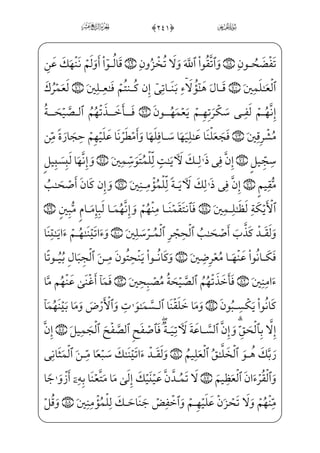 ﴿٢٤١﴾
تَفْضَحُونِ ٦٨ وَٱتَّقُوا۟ ٱللَّهَ وَلَا تُخْزُونِ ٦٩ قَالُوٓا۟ أَوَلَمْ نَنْهَكَ عَنِ
ٱلْعَٰلَمِينَ ٧٠ قَالَ هَٰٓؤُلَآءِ بَنَاتِىٓ إِن كُنتُمْ فَٰعِلِينَ ٧١ لَعَمْرُكَ
إِنَّهُمْ لَفِى سَكْرَتِهِمْ يَعْمَهُونَ ٧٢ فَأَخَذَتْهُمُ ٱلصَّيْحَةُ
مُشْرِقِينَ ٧٣ فَجَعَلْنَا عَٰلِيَهَا سَافِلَهَا وَأَمْطَرْنَا عَلَيْهِمْ حِجَارَةً مِّن
سِجِّيلٍ ٧٤ إِنَّ فِى ذَٰلِكَ لَءَايَٰتٍ لِّلْمُتَوَسِّمِينَ ٧٥ وَإِنَّهَا لَبِسَبِيلٍ
مُّقِيمٍ ٧٦ إِنَّ فِى ذَٰلِكَ لَءَايَةً لِّلْمُؤْمِنِينَ ٧٧ وَإِن كَانَ أَصْحَٰبُ
ٱلْأَيْكَةِ لَظَٰلِمِينَ ٧٨ فَٱنتَقَمْنَا مِنْهُمْ وَإِنَّهُمَا لَبِإِمَامٍ مُّبِينٍ
٧٩ وَلَقَدْ كَذَّبَ أَصْحَٰبُ ٱلْحِجْرِ ٱلْمُرْسَلِينَ ٨٠ وَءَاتَيْنَٰهُمْ ءَايَٰتِنَا
فَكَانُوا۟ عَنْهَا مُعْرِضِينَ ٨١ وَكَانُوا۟ يَنْحِتُونَ مِنَ ٱلْجِبَالِ بُيُوتًا
ءَامِنِينَ ٨٢ فَأَخَذَتْهُمُ ٱلصَّيْحَةُ مُصْبِحِينَ ٨٣ فَمَآ أَغْنَىٰ عَنْهُم مَّا
كَانُوا۟ يَكْسِبُونَ ٨٤ وَمَا خَلَقْنَا ٱلسَّمَٰوَٰتِ وَٱلْأَرْضَ وَمَا بَيْنَهُمَآ
إِلَّا بِٱلْحَقِّ ۗ وَإِنَّ ٱلسَّاعَةَ لَءَاتِيَةٌ ۖ فَٱصْفَحِ ٱلصَّفْحَ ٱلْجَمِيلَ ٨٥ إِنَّ
رَبَّكَ هُوَ ٱلْخَلَّٰقُ ٱلْعَلِيمُ ٨٦ وَلَقَدْ ءَاتَيْنَٰكَ سَبْعًا مِّنَ ٱلْمَثَانِى
وَٱلْقُرْءَانَ ٱلْعَظِيمَ ٨٧ لَا تَمُدَّنَّ عَيْنَيْكَ إِلَىٰ مَا مَتَّعْنَا بِهِۦٓ أَزْوَٰجًا
مِّنْهُمْ وَلَا تَحْزَنْ عَلَيْهِمْ وَٱخْفِضْ جَنَاحَكَ لِلْمُؤْمِنِينَ ٨٨ وَقُلْ